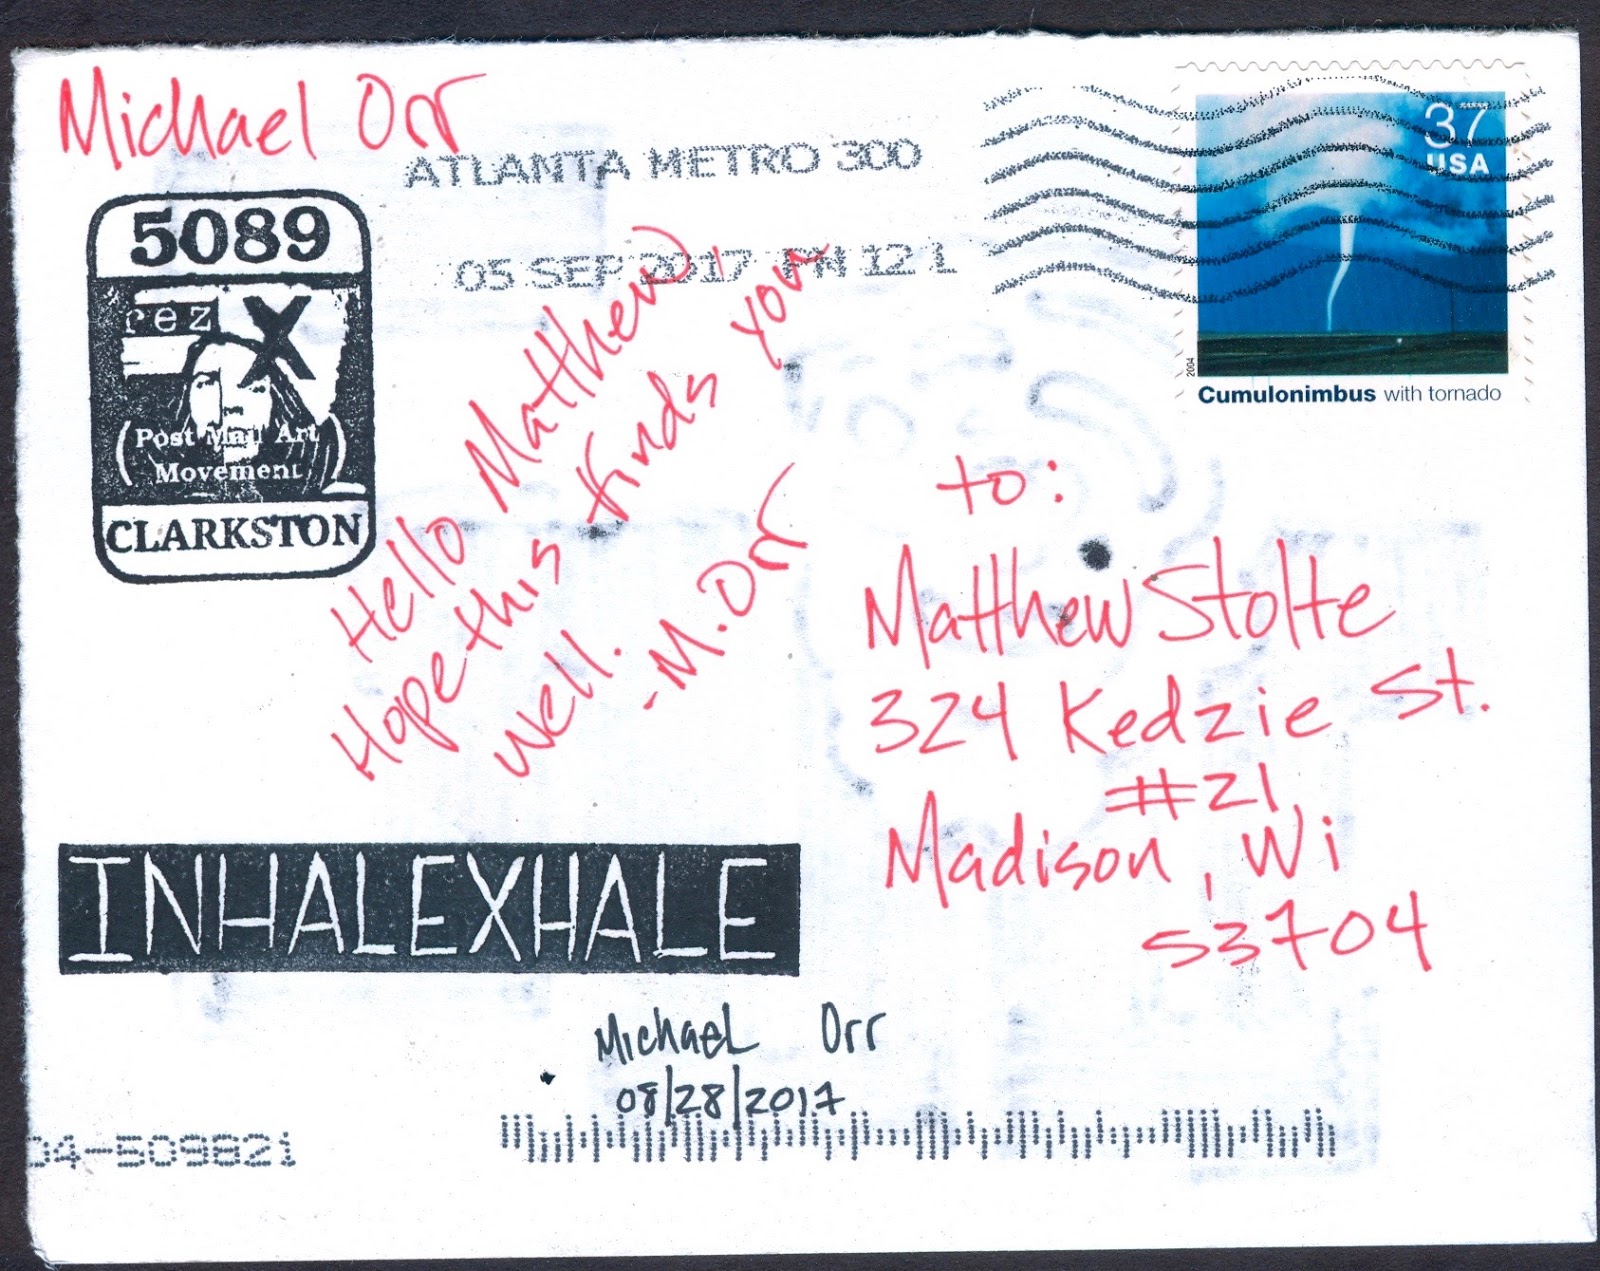 Michael Orr
ATLANTA METRO 300
05 SEP 2017 PM 12 L
37
USA
2004
Cumulonimbus with tornado
5089
rez X
(Post Mail Art
Movement)
CLARKSTON
Hello Matthew,
Hope this finds you
well.
-M. Orr
to:
Matthew Stolte
324 Kedzie St.
#21
Madison, Wi
53704
INHALEXHALE
Michael Orr
08/28/2017
04-509821